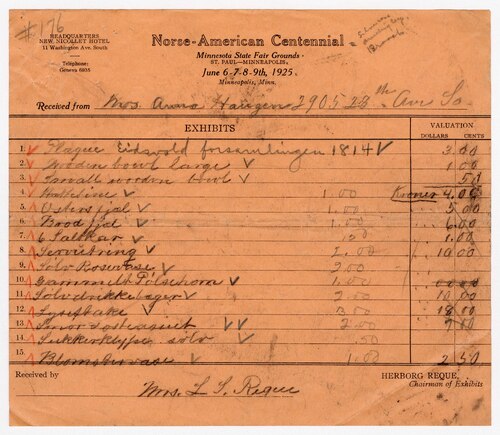 #176
HEADQUARTERS
NEW NICOLLET HOTEL
11 Washington Ave. South
Telephone:
Geneva 6835
Norse-American Centennial
Minnesota State Fair Grounds
ST. PAUL—MINNEAPOLIS.
June 6-7-8-9th, 1925
Minneapolis, Minn.
Received from Mrs. Anna Haugen 2905 23 Ave So.
EXHIBITS VALUATION
DOLLARS CENTS
1. Plaque Eidsvold forsamlingen 1814 3.00
2. Wooden bowl large 1 00
3. Small wooden bowl 50
4. 1.00 Kroner 4.00
5. Osters fjal 1.00 5 00
6. Brod fjel 1.00 6.00
7. 6 Saltkar .50 1.00
8. Servittring 2.00 10 00
9. Solv Rosevase 2 00
10. Gammelt 1.00
11. Solvdrikkebager 2 00 10 00
12. Lysestake 3 00 18 00
13. 2.00
14. Sukkerklype solv .50
15. Blomstervase 1.00 2 50
Received by
Mrs. L. S. Reque
HERBORG REQUE,
Chairman of Exhibits